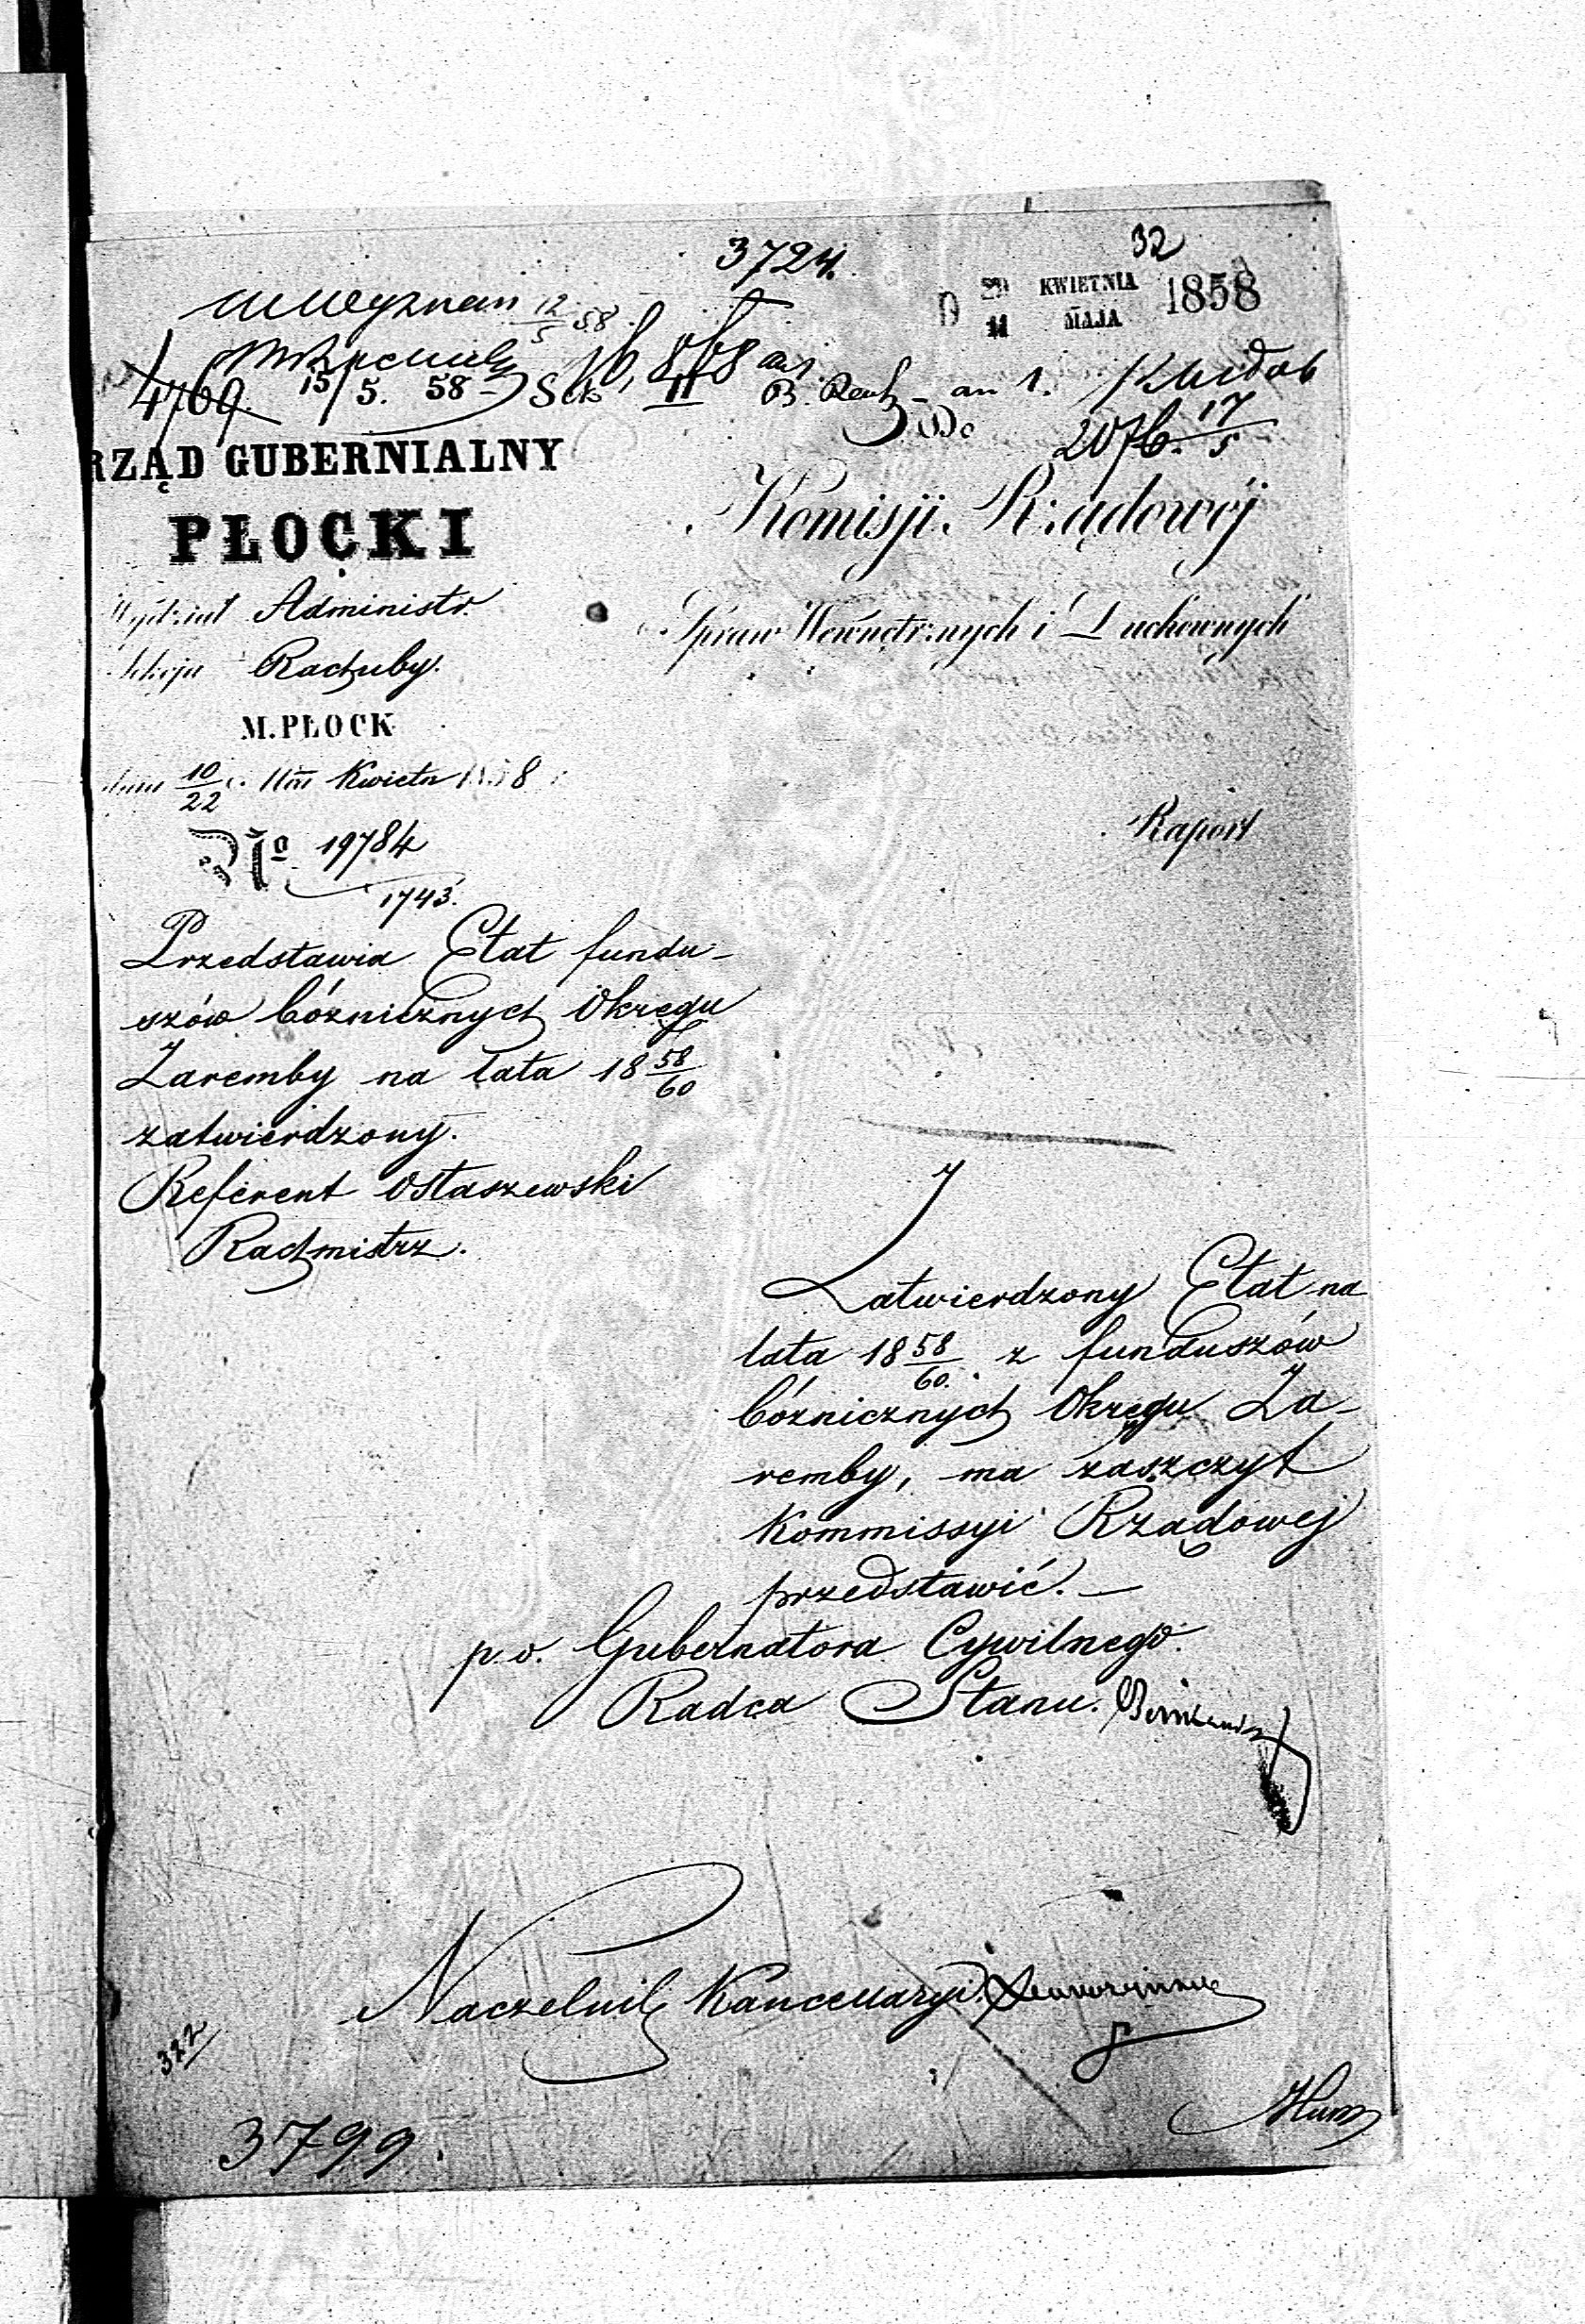 3724.
32
D 29/11 KWIETNIA MAJA 1858
12/5 58
4769. 15/5. 58 II an 1.
2076. 17/5
RZĄD GUBERNIALNY
PŁOCKI
Wydział Administr.
Sekcja Rachuby.
M. PŁOCK
dnia 10/22 Kwietn 1858
No 19784
1743.
Przedstawia Etat fundu-
szów bóżnicznych Okręgu
Zaremby na lata 18 58/60
zatwierdzony.
Referent Ostaszewski
Rachmistrz.
Do
Komisji Rządowéj
Spraw Wewnętrznych i Duchownych
Raport
Zatwierdzony Etat na
lata 18 58/60. z funduszów
bóżnicznych Okręgu Za-
remby, ma zaszczyt
Kommissyi Rządowej
przedstawić. —
p. o. Gubernatora Cywilnego.
Radca Stanu.
Naczelnik Kancellaryi
322
3799.